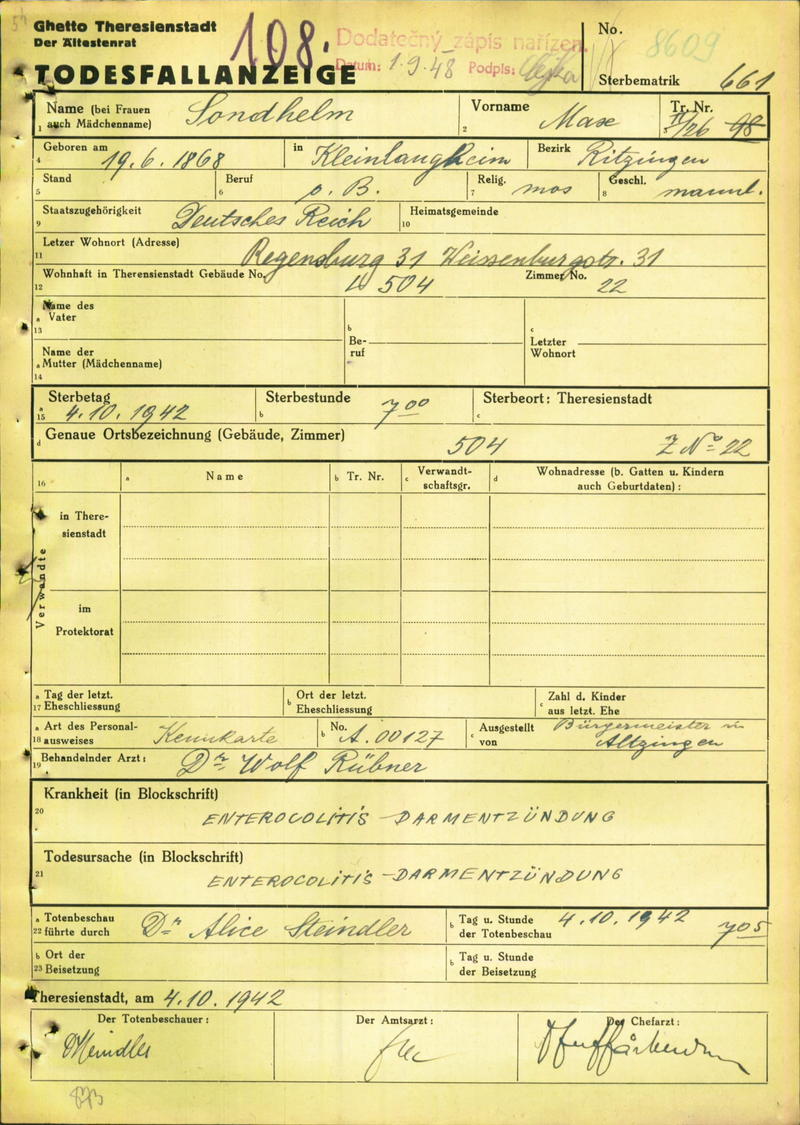 Ghetto Theresienstadt
Der Ältestenrat
108.
Dodatečný zápis nařízen.
Datum: 1.9.48 Podpis:
No. 8609
TODESFALLANZEIGE
Sterbematrik 661
Name (bei Frauen auch Mädchenname) Sondhelm
1
Vorname Max
2
Tr. Nr. II/26 98
3
Geboren am 19.6.1868
4
in Kleinlangheim
Bezirk Kitzingen
Stand
5
Beruf o. B.
6
Relig. mos
7
Geschl. männl.
8
Staatszugehörigkeit Deutsches Reich
9
Heimatsgemeinde
10
Letzer Wohnort (Adresse)
11 Regensburg 31 Weissenburgstr. 31
Wohnhaft in Therensienstadt Gebäude No. 504
12
Zimmer No. 22
Name des
a Vater
13
b
Be-
ruf
c
Letzter
Wohnort
Name der
a Mutter (Mädchenname)
14
Sterbetag
a
15 4.10.1942
Sterbestunde 7 00
b
Sterbeort: Theresienstadt
c
Genaue Ortsbezeichnung (Gebäude, Zimmer)
d 504 Z No 22
16
a Name
b Tr. Nr.
c Verwandt-
schaftsgr.
d Wohnadresse (b. Gatten u. Kindern
auch Geburtdaten):
Verwandte
in There-
sienstadt
im
Protektorat
a Tag der letzt.
17 Eheschliessung
b Ort der letzt.
Eheschliessung
c Zahl d. Kinder
aus letzt. Ehe
a Art des Personal-
18 ausweises Kennkarte
b No. A.00127
c Ausgestellt
von Bürgermeister in
19 Behandelnder Arzt: Dr Wolf Rübner
Krankheit (in Blockschrift)
20 ENTEROCOLITIS – DARMENTZÜNDUNG
Todesursache (in Blockschrift)
21 ENTEROCOLITIS – DARMENTZÜNDUNG
a Totenbeschau
22 führte durch Dr Alice Steindler
b Tag u. Stunde
der Totenbeschau 4.10.1942 7 05
b Ort der
23 Beisetzung
b Tag u. Stunde
der Beisetzung
Theresienstadt, am 4.10.1942
Der Totenbeschauer:
Der Amtsarzt:
Der Chefarzt:
Steindler